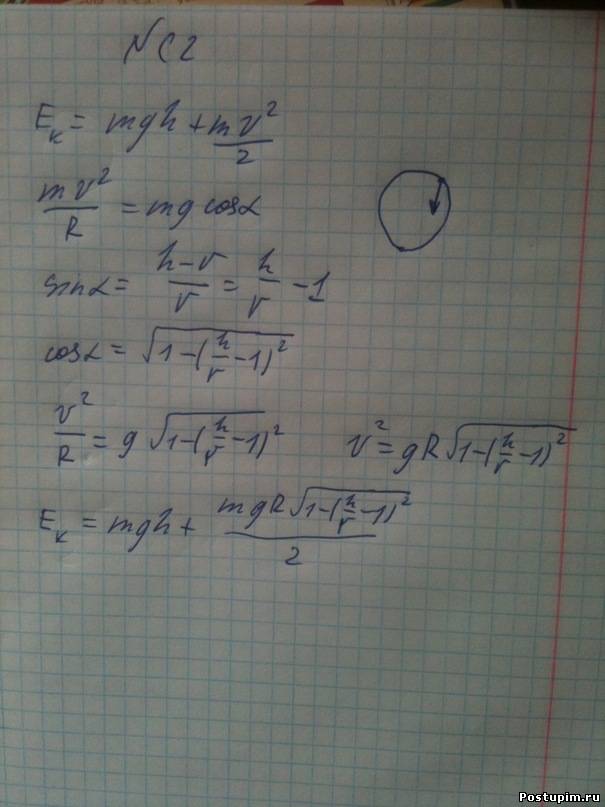 № C2
E_k = mgh + mv²/2
mv²/R = mg cosα
sinα = (h-r)/r = h/r - 1
cosα = √(1-(h/r-1)²)
v²/R = g √(1-(h/r-1)²) v² = gR√(1-(h/r-1)²)
E_k = mgh + mgR√(1-(h/r-1)²)/2
Postupim.ru